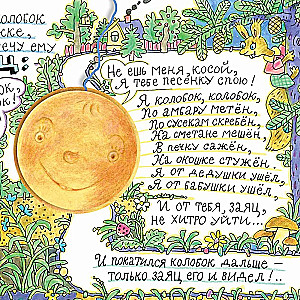 КОЛОБОК
СКЕ,
ЕЧУ ЕМУ
ОК,
ОК!
Не ешь меня, косой,
Я тебе песенку спою!
Я колобок, колобок,
По амбару метён,
По сусекам скребён,
На сметане мешён,
В печку сажён,
На окошке стужён,
Я от дедушки ушёл,
Я от бабушки ушёл,
И от тебя, заяц,
не хитро уйти...
И покатился колобок дальше —
только заяц его и видел!..